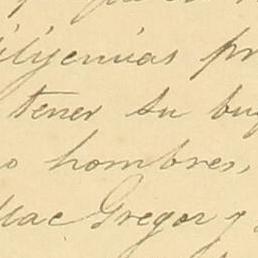 diligencias pr
tener su buq
o hombres,
Mac Gregor y